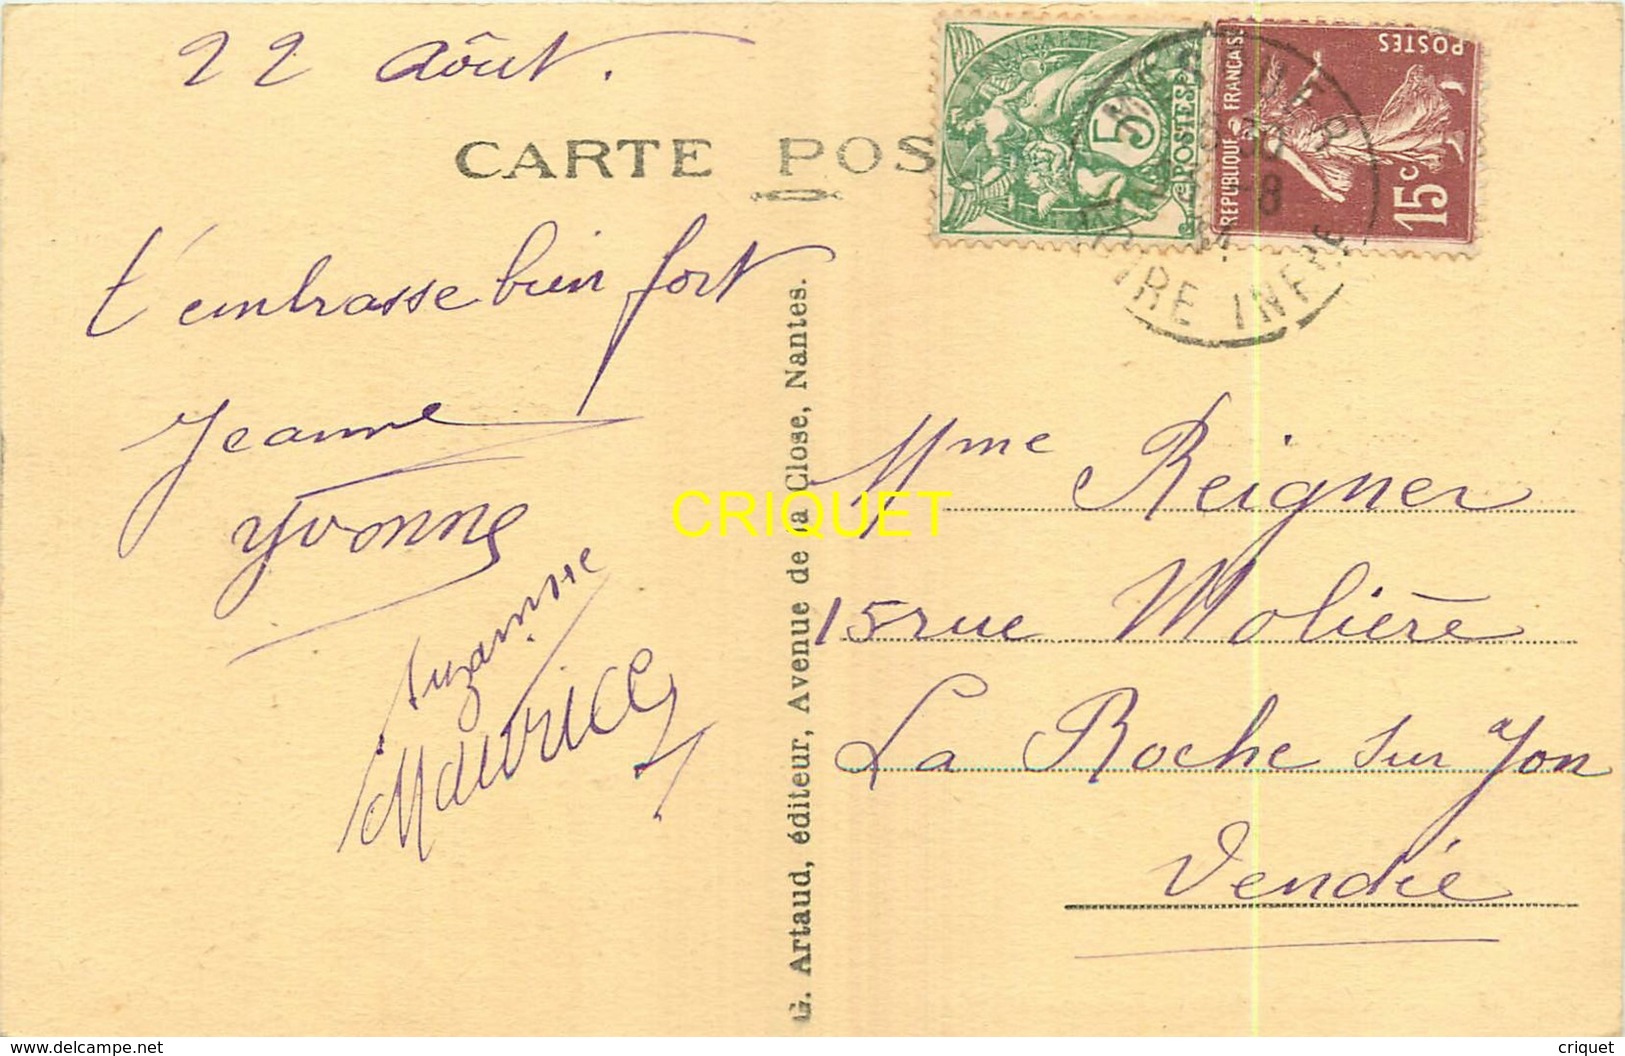 22 Août.
CARTE POS
t'embrasse bien fort
Jeanne
Yvonne
Suzanne
Maurice
G. Artaud, éditeur, Avenue de la Close, Nantes.
POSTES
5
REPUBLIQUE FRANÇAISE
POSTES
15c
MESQUER
LOIRE INFRE
Mme Reigner
15 rue Molière
La Roche sur Yon
Vendée
CRIQUET
www.delcampe.net
criquet